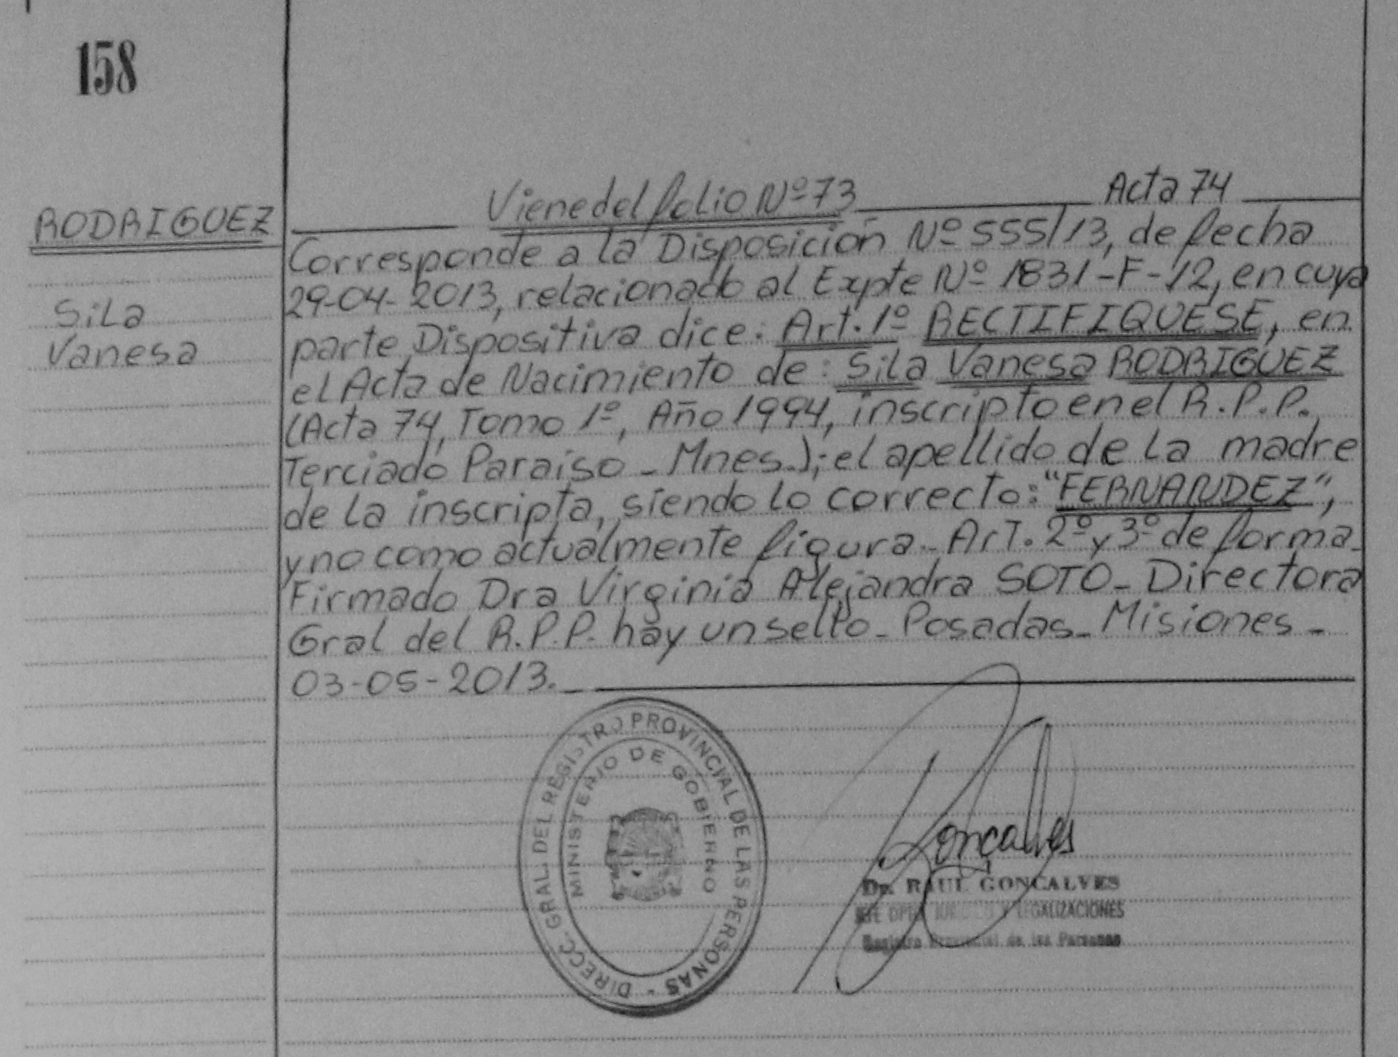 158
RODRIGUEZ
Sila
Vanesa
Viene del folio Nº 73 Acta 74
Corresponde a la Disposición Nº 555/13, de fecha
29-04-2013, relacionado al Expte Nº 1831-F-12, en cuya
parte Dispositiva dice: Art. 1º RECTIFIQUESE, en
el Acta de Nacimiento de: Sila Vanesa RODRIGUEZ
(Acta 74, Tomo 1º, Año 1994, inscripto en el R.P.P.
Terciado Paraíso - Mnes.); el apellido de la madre
de la inscripta, siendo lo correcto: "FERNANDEZ",
y no como actualmente figura - Art. 2º y 3º de forma -
Firmado Dra Virginia Alejandra SOTO - Directora
Gral del R.P.P. hay un sello - Posadas - Misiones -
03-05-2013.
DIRECC. GRAL. DEL REGISTRO PROVINCIAL DE LAS PERSONAS -
MINISTERIO DE GOBIERNO
Goncalves
Dr. RAUL GONCALVES
Y LEGALIZACIONES
Registro Provincial de las Personas